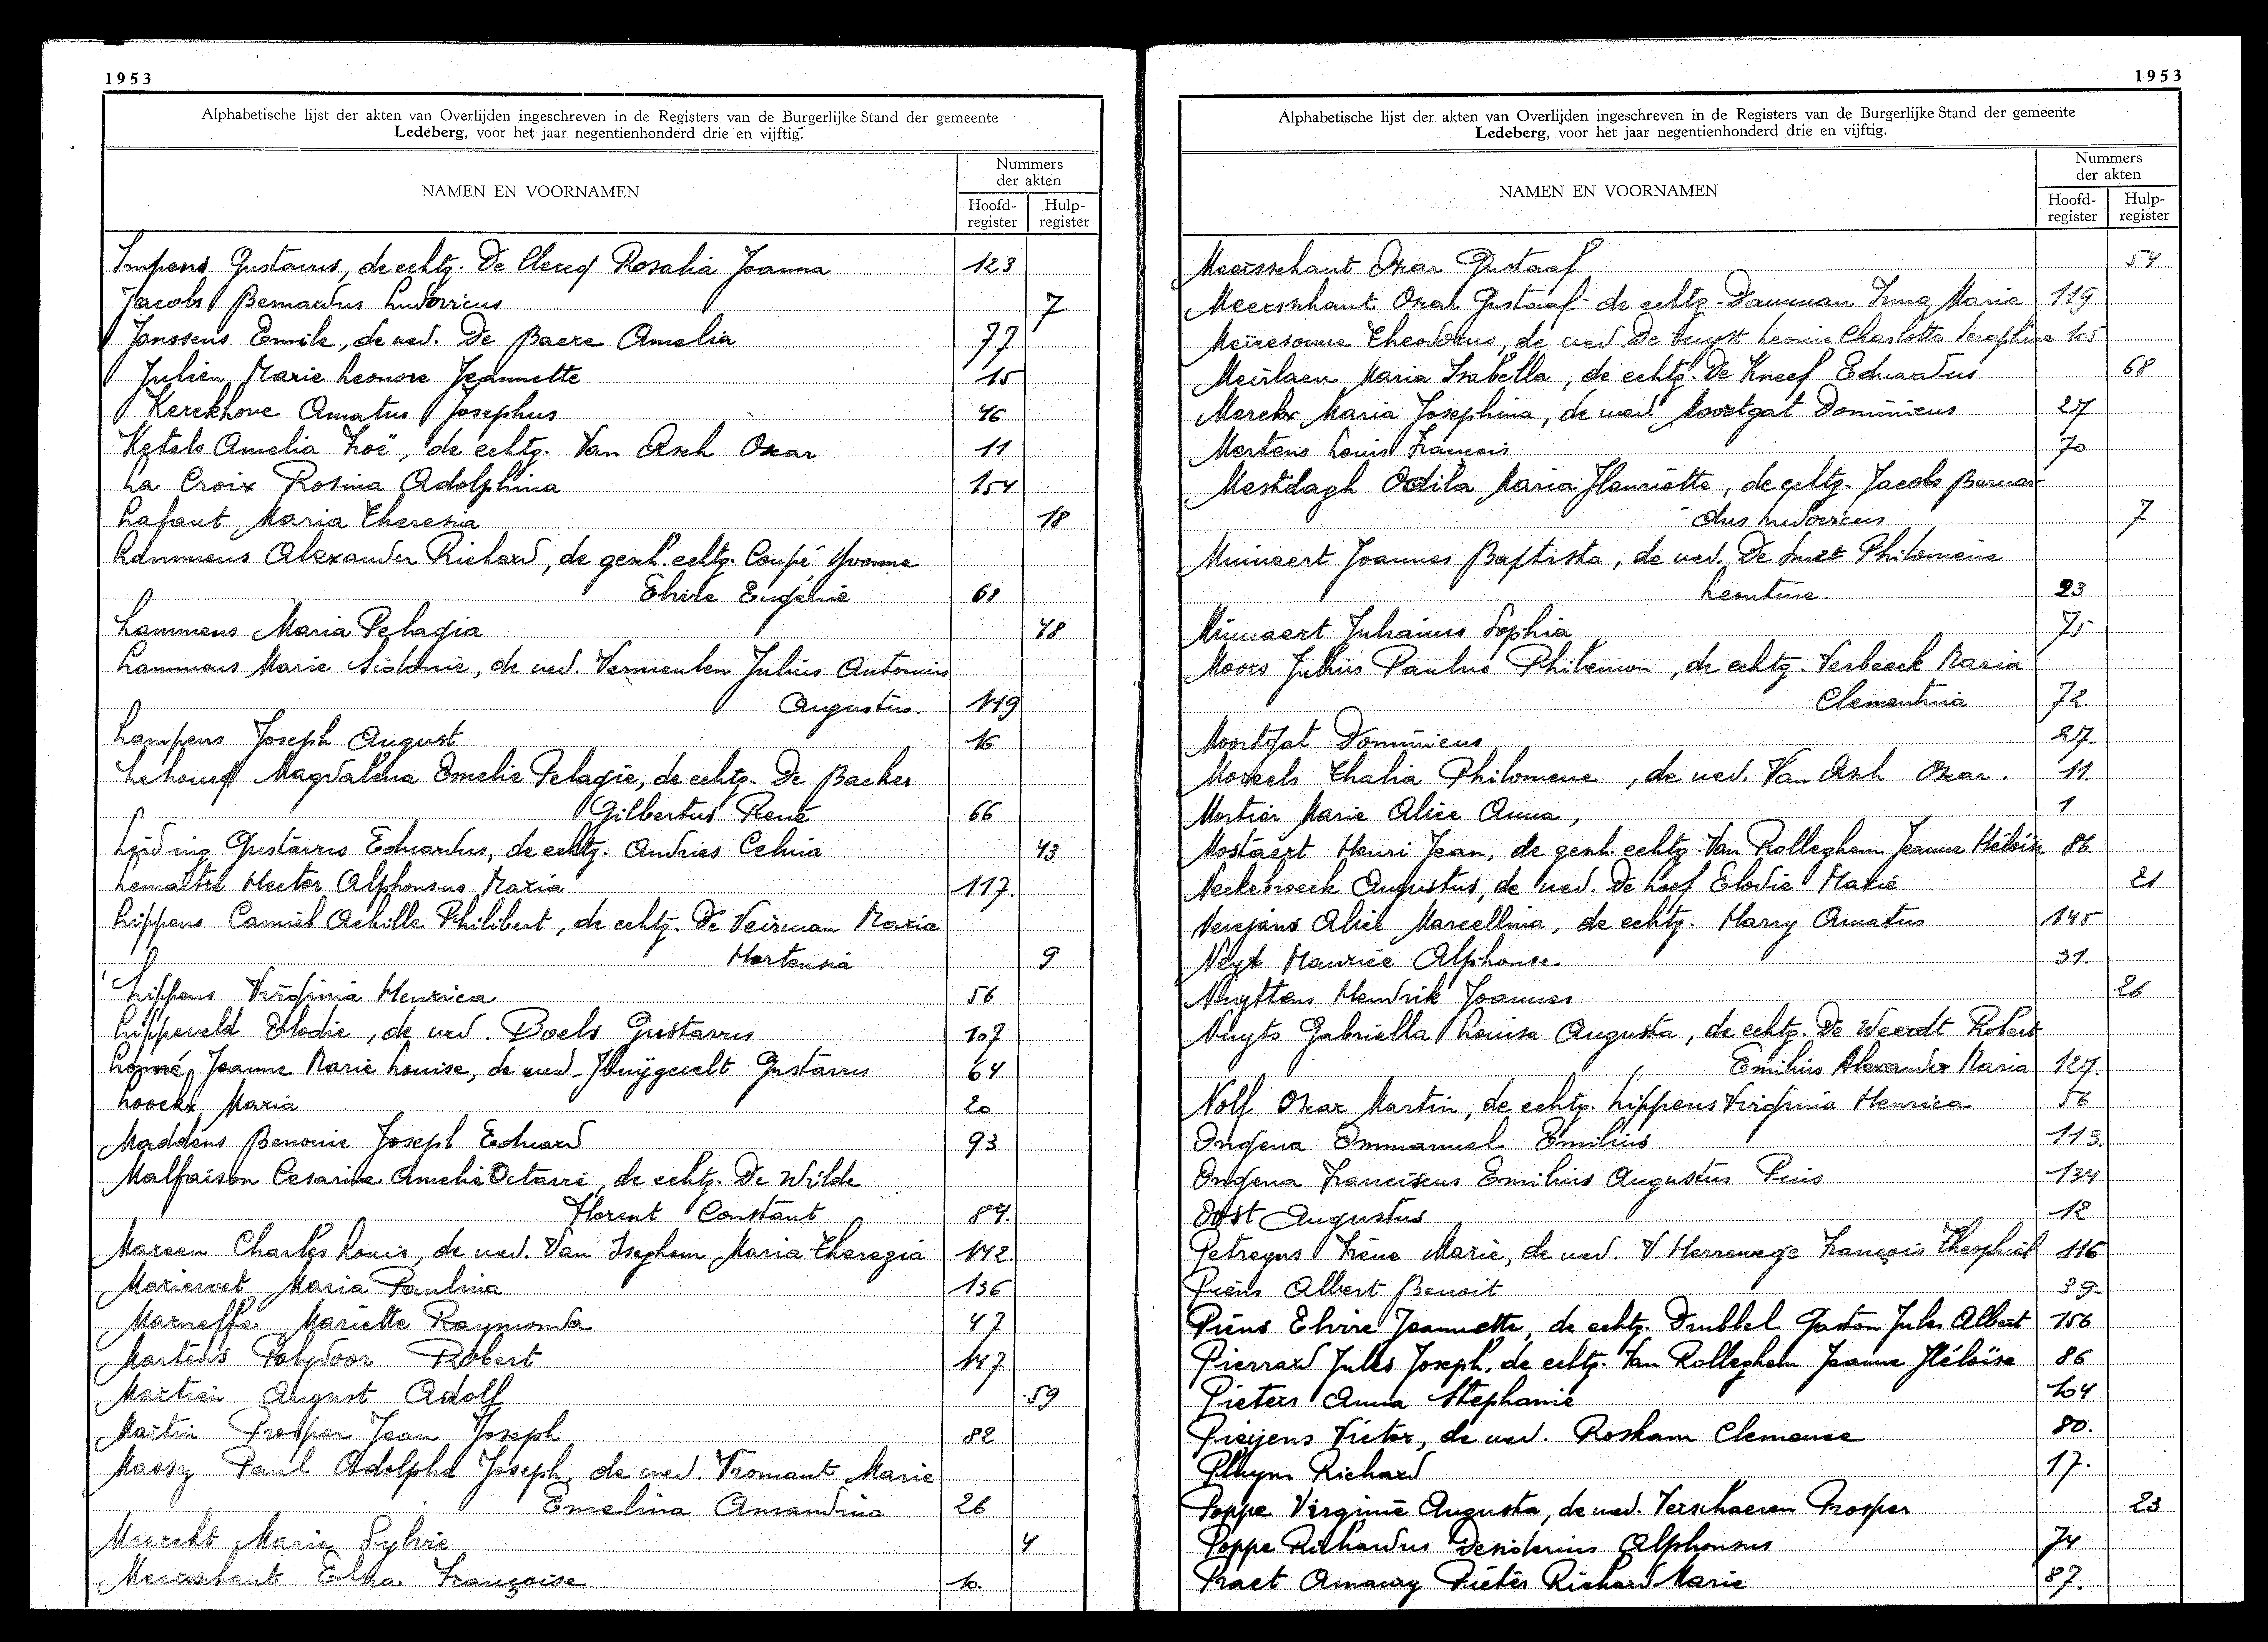 1953
Alphabetische lijst der akten van Overlijden ingeschreven in de Registers van de Burgerlijke Stand der gemeente
Ledeberg, voor het jaar negentienhonderd drie en vijftig.
NAMEN EN VOORNAMEN
Nummers
der akten
Hoofd-
register
Hulp-
register
Impens Gustavus, de echtg. De Clercq Rosalia Joanna 123
Jacobs Bernardus Ludovicus 7
Janssens Emile, de wed. De Baere Amelia 77
Julien Marie Leonore Jeannette 15
Kerckhove Amatus Josephus 46
Ketels Amelia Zoë, de echtg. Van Asch Oscar 11
La Croix Rosina Adolphina 154
Lafaut Maria Theresia 18
Lammens Alexander Richard, de gesch. echtg. Coupé Yvonne
Elvire Eugénie 68
Lammens Maria Pelagia 48
Lammens Marie Sidonie, de wed. Vermeulen Julius Antonius
Augustus. 149
Lampens Joseph August 16
Magdalena Emelie Pelagie, de echtg. De Backer
Gilbertus René 66
Leiding Gustavus Eduardus, de echtg. Andries Celina 43
Hector Alphonsus Maria 117.
Lippens Camiel Achille Philibert, de echtg. De Veirman Maria
Hortensia 9
Lippens Virginia Henrica 56
Lippeveld Elodie, de wed. Boels Gustavus 107
Jeanne Marie Louise, de wed. Gustavus 64
Loockx Maria 20
Maddens Benonie Joseph Eduard 93
Malfaison Cesarine Amelie Octavie, de echtg. De Wilde
Florent Constant 84.
Mareen Charles Louis, de wed. Van Iseghem Maria Theresia 142
Maria Paulina 136
Marneffe Mariette Raymonda 47
Martens Polydoor Robert 147
August Adolf 59
Martin Prosper Jean Joseph 82
Paul Adolphe Joseph, de wed. Vromant Marie
Emelina Amandina 26
Marie Sylvie 4
Meerschaut Elza Françoise 10.
1953
Alphabetische lijst der akten van Overlijden ingeschreven in de Registers van de Burgerlijke Stand der gemeente
Ledeberg, voor het jaar negentienhonderd drie en vijftig.
NAMEN EN VOORNAMEN
Nummers
der akten
Hoofd-
register
Hulp-
register
Meersschaut Oscar Gustaaf 54
Meersschaut Oscar Gustaaf de echtg. Dauwman Irma Maria 119
Meiresonne Theodorus, de wed. De Leonie Charlotte Seraphine 105
Meirlaen Maria Isabella, de echtg. De Kneef Eduardus 68
Merckx Maria Josephina, de wed. Moortgat Dominicus 27
Mertens Louis François 70
Mestdagh Odila Maria Henriette, de echtg. Jacobs Bernar-
dus Ludovicus 7
Minnaert Joannes Baptista, de wed. De Smet Philomène
Leontine. 23
Minnaert Julianus Sophia 75
Moors Julius Paulus Philemon, de echtg. Verbeeck Maria
Clementina 72.
Moortgat Dominicus 27
Moreels Thalia Philomene, de wed. Van Asch Oscar. 11.
Mortier Marie Alice Anna, 1
Mostaert Henri Jean, de gesch. echtg. Van Rolleghem Jeanne Héloïse 86.
Neckebroeck Augustus, de wed. De Loof Elodie Marie 21
Nerejans Alice Marcellina, de echtg. Harry Amatus 145
Neyt Maurice Alphonse 31.
Nuyttens Hendrik Joannes 26
Nuyts Gabriella Louisa Augusta, de echtg. De Weerdt Robert
Emilius Alexander Maria 127.
Nolf Oscar Martin, de echtg. Lippens Virginia Henrica 56
Ongena Emmanuel Emilius 113.
Ongena Franciscus Emilius Augustus Pius 134
Oost Augustus 12
Petreyns Irène Marie, de wed. V. Herrewege François Theophiel 116
Piens Albert Benoit 39.
Piens Elvire Jeannette, de echtg. Drubbel Gaston Jules Albert 156
Pierrard Jules Joseph. de echtg. Van Rolleghem Jeanne Héloïse 86
Pieters Anna Stephanie 104
Victor, de wed. Roskam Clemence 80.
Pluym Richard 17.
Poppe Virginie Augusta, de wed. Verschaeren Prosper 23
Poppe Richardus Desiderius Alphonsus 74
Praet Amaury Piéter Richard Marie 87.